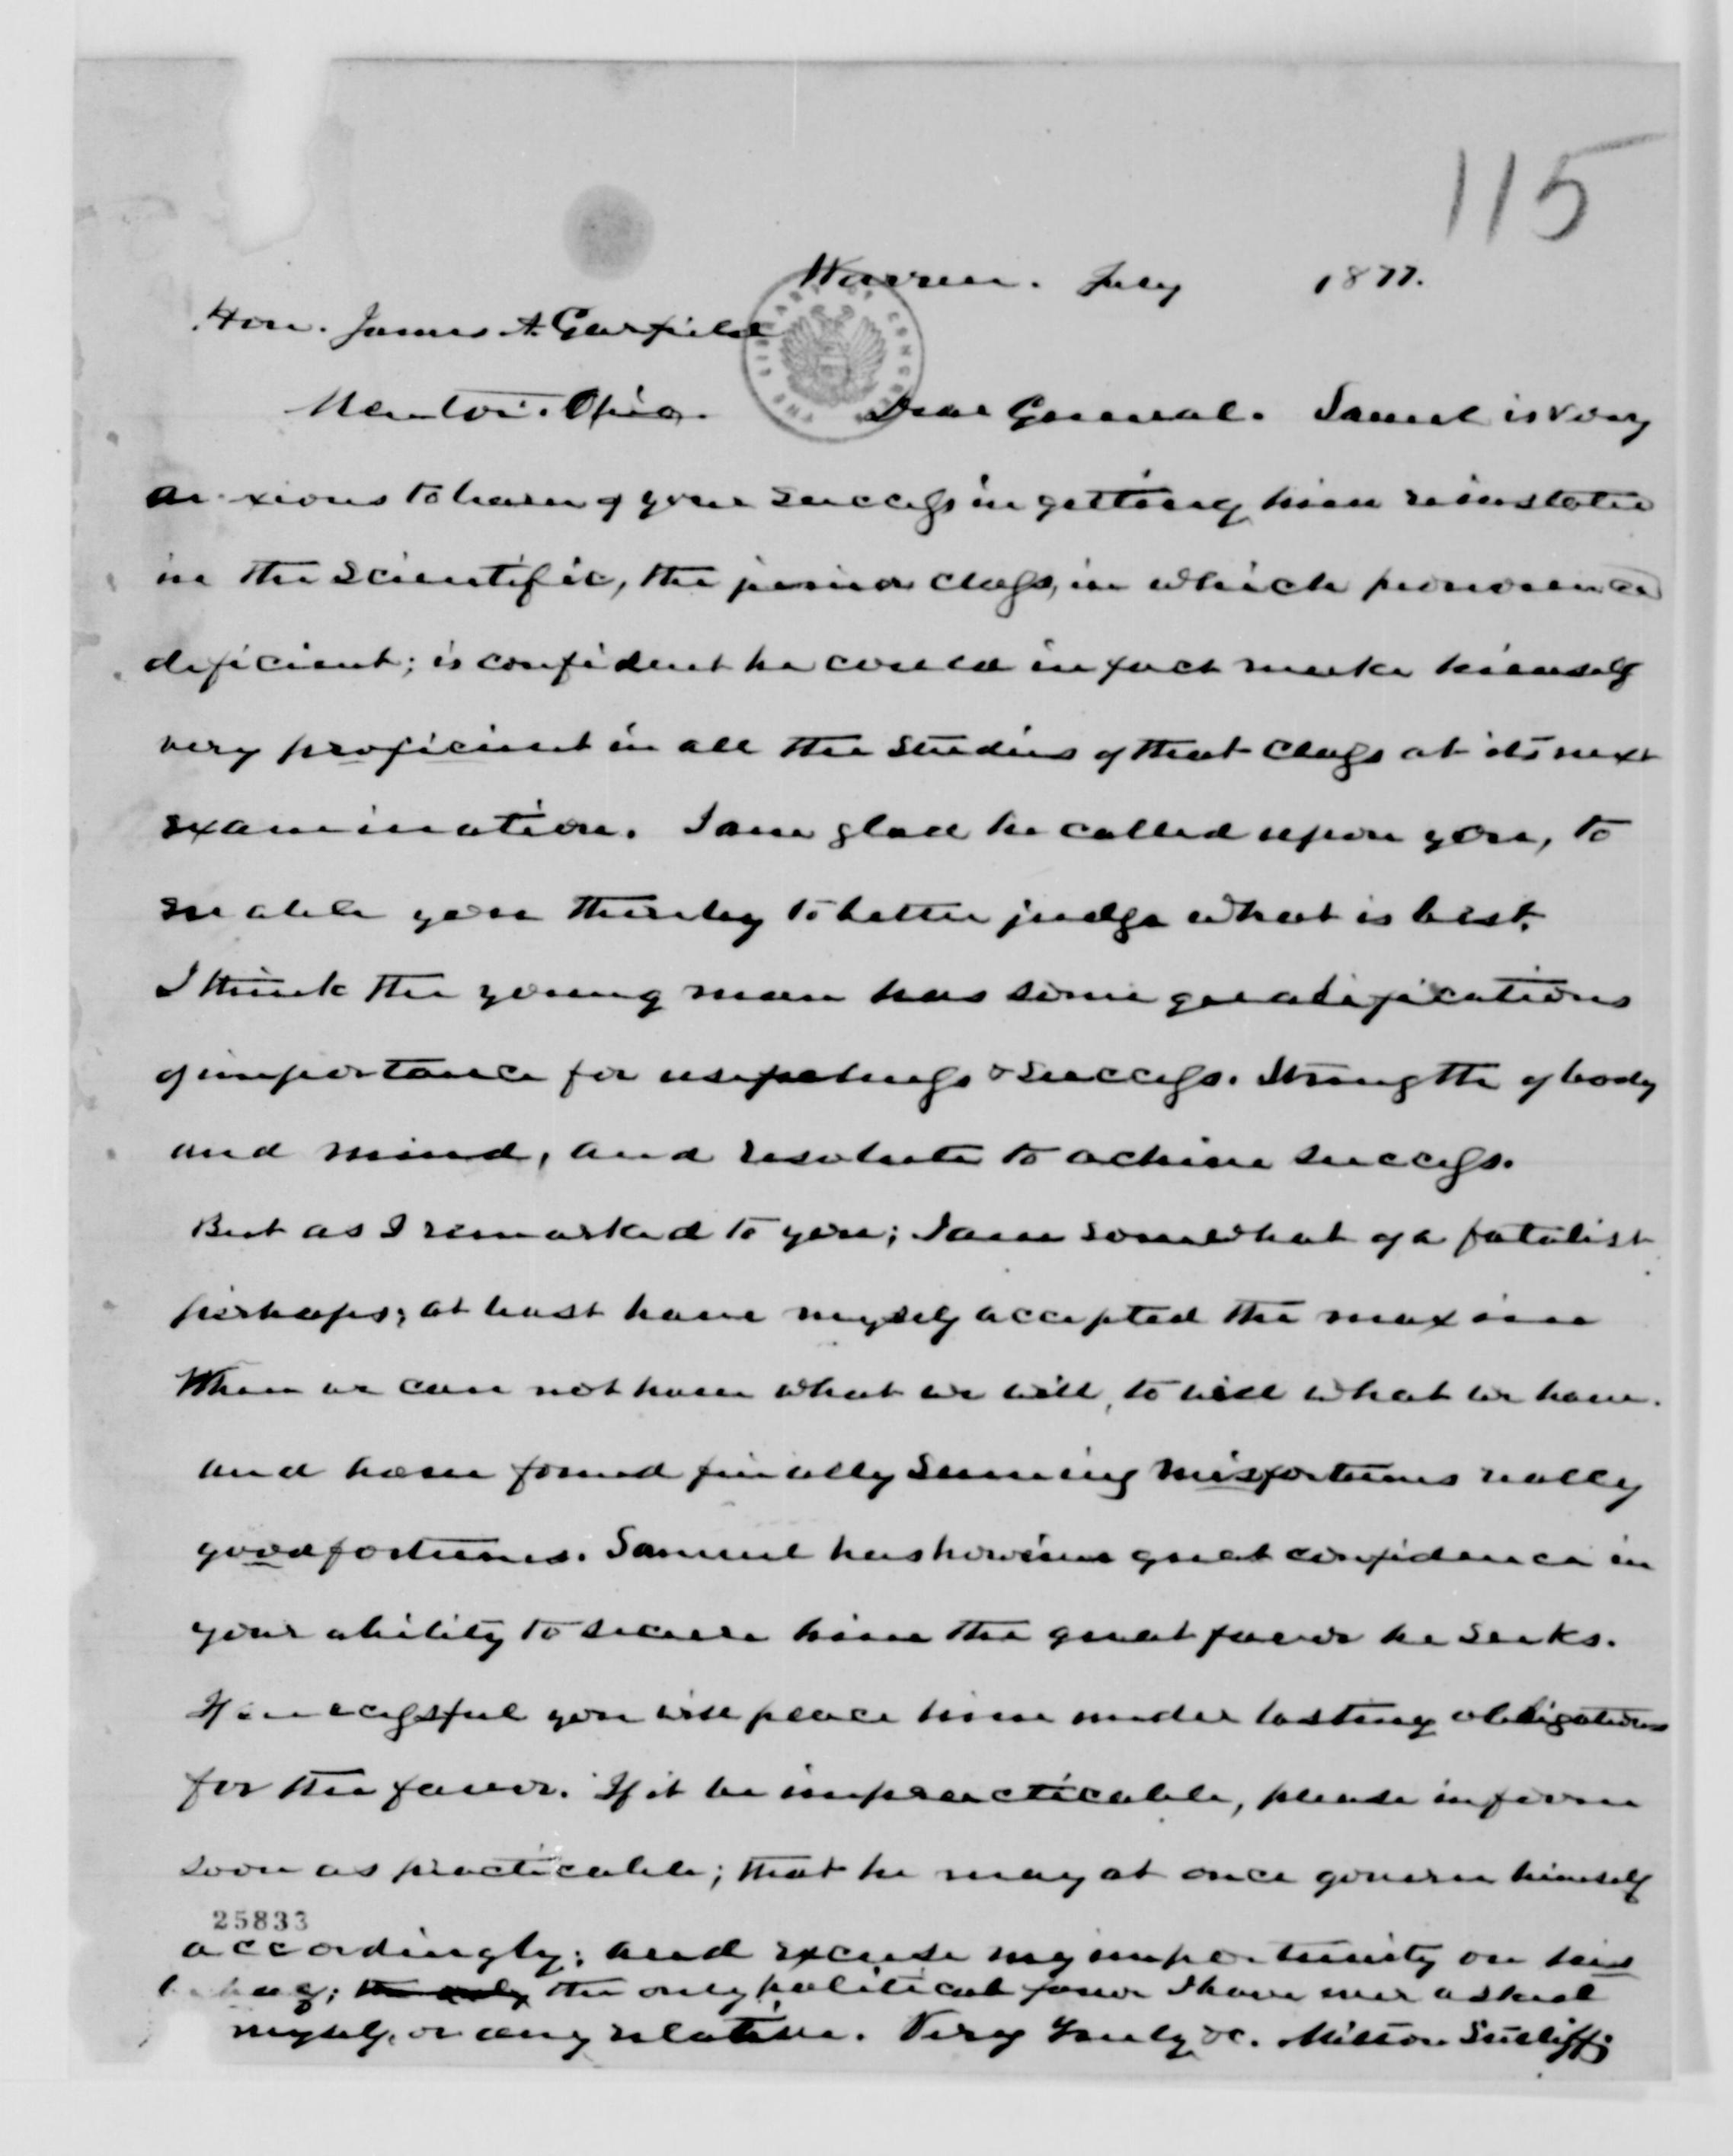 115
Warren. July 1877.
Hon. James A. Garfield
Mentor. Ohio. Dear General. Samuel is very
anxious to learn of your success in getting him reinstated
in the scientific, the junior class, in which pronounced
deficient; is confident he could in fact make himself
very proficient in all the studies of that class at its next
examination. I am glad he called upon you, to
enable you thereby to better judge what is best.
I think the young man has some qualifications
of importance for usefulness & success. Strength of body
and mind, and resolute to achieve success.
But as I remarked to you; I am somewhat of a fatalist
perhaps; at least have myself accepted the maxim
When we can not have what we will, to will what we have.
and have found finally seeming misfortunes really
good fortunes. Samuel has however great confidence in
your ability to secure him the great favor he seeks.
If successful you will place him under lasting obligations
for the favor. If it be impracticable, please inform
soon as practicable; that he may at once govern himself
25833
accordingly; and excuse my importunity on his
behalf; the only the only political favor I have ever asked
myself, or any relative. Very Truly &c. Milton Sutliff
THE LIBRARY OF CONGRESS